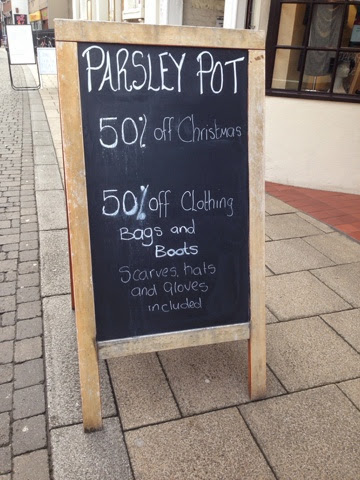 PARSLEY POT
50% off Christmas
50% off Clothing
Bags and
Boots
Scarves, hats
and Gloves
included